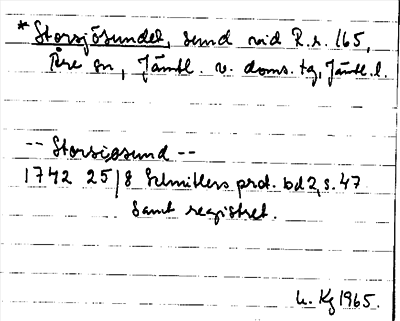 * Storsjösundet, sund vid R.r. 165,
Åre sn, Jämtl. v. doms. tg, Jämtl. l.
-- Storsiösund --
1742 25/8 Schnitlers prot. bd 2, s. 47
samt registret.
Kg 1965.